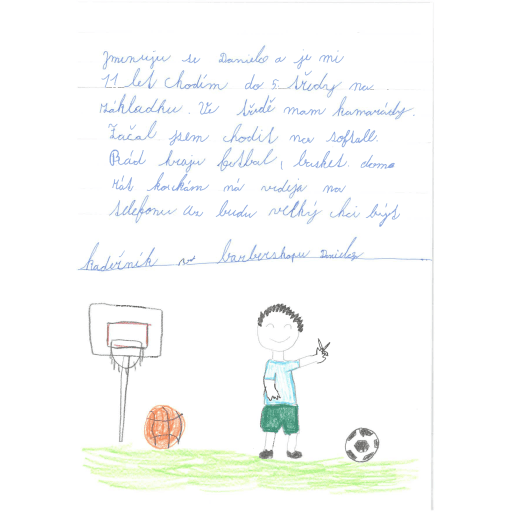 Jmenuju se Daniel a je mi
11 let chodím do 5. třídy na
základku. Ve třídě mam kamarády.
Začal jsem chodit na softall.
Rád hraju fotbal, basket. doma
rát koukám ná vidėja na
telefonu až budu velký chci být
kadeřník v barbershopu Daniel